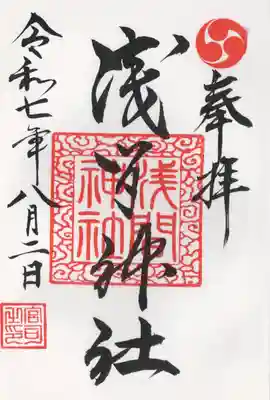 奉拝
浅間神社
浅間神社
令和七年八月二日
宮司之印